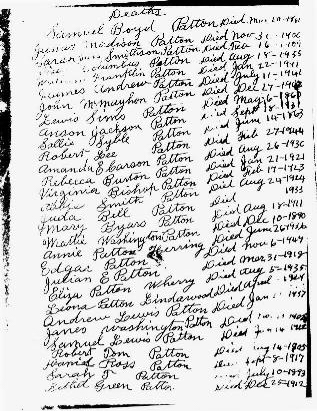 Deaths.
Samuel Boyd Patton Died Mar 20-18
James Madison Patton Died Nov 31-19
Sarah Smithson Patton Died Feb 16-19
Columbus Patton Died Aug 18-1935
Franklin Patton Died Jan 22-1941
James Andrew Patton Died July 11-1941
John McMayhon Patton Died Dec 27-19
Lewis Sims Patton Died May 6-186
Anson Jackson Patton Died Sept 18-
Sallie Sybile Patton Died June 14-1863
Robert Lee Patton Died Feb 27-1944
Amanda E Carson Patton Died Aug 26-1930
Rebecca Burton Patton Died Jan 21-1921
Virginia Bishop Patton Died Feb 17-1923
Smith Patton Died Aug 24-1924
Juda Bell Patton Died 1933
Mary Byars Patton Died Aug 18-1911
Mattie Washington Patton Died Dec 10-1890
Annie Patton Herring Died June 26 1936
Edgar Patton Died Nov 6-1947
Julian E Patton Died Mar 31-1918
Eliza Patton Wherry Died Aug 5-1935
Leona Patton Underwood Died April
Andrew Lewis Patton Died Jan 11-1937
James Washington Patton Died
Samuel Lewis Patton Died
Robert Tom Patton Died Aug 14-
Daniel Ross Patton Died Sept-8-1917
Sarah T Patton Died July 10-1893
Ethel Green Patton Died Dec 25-1912